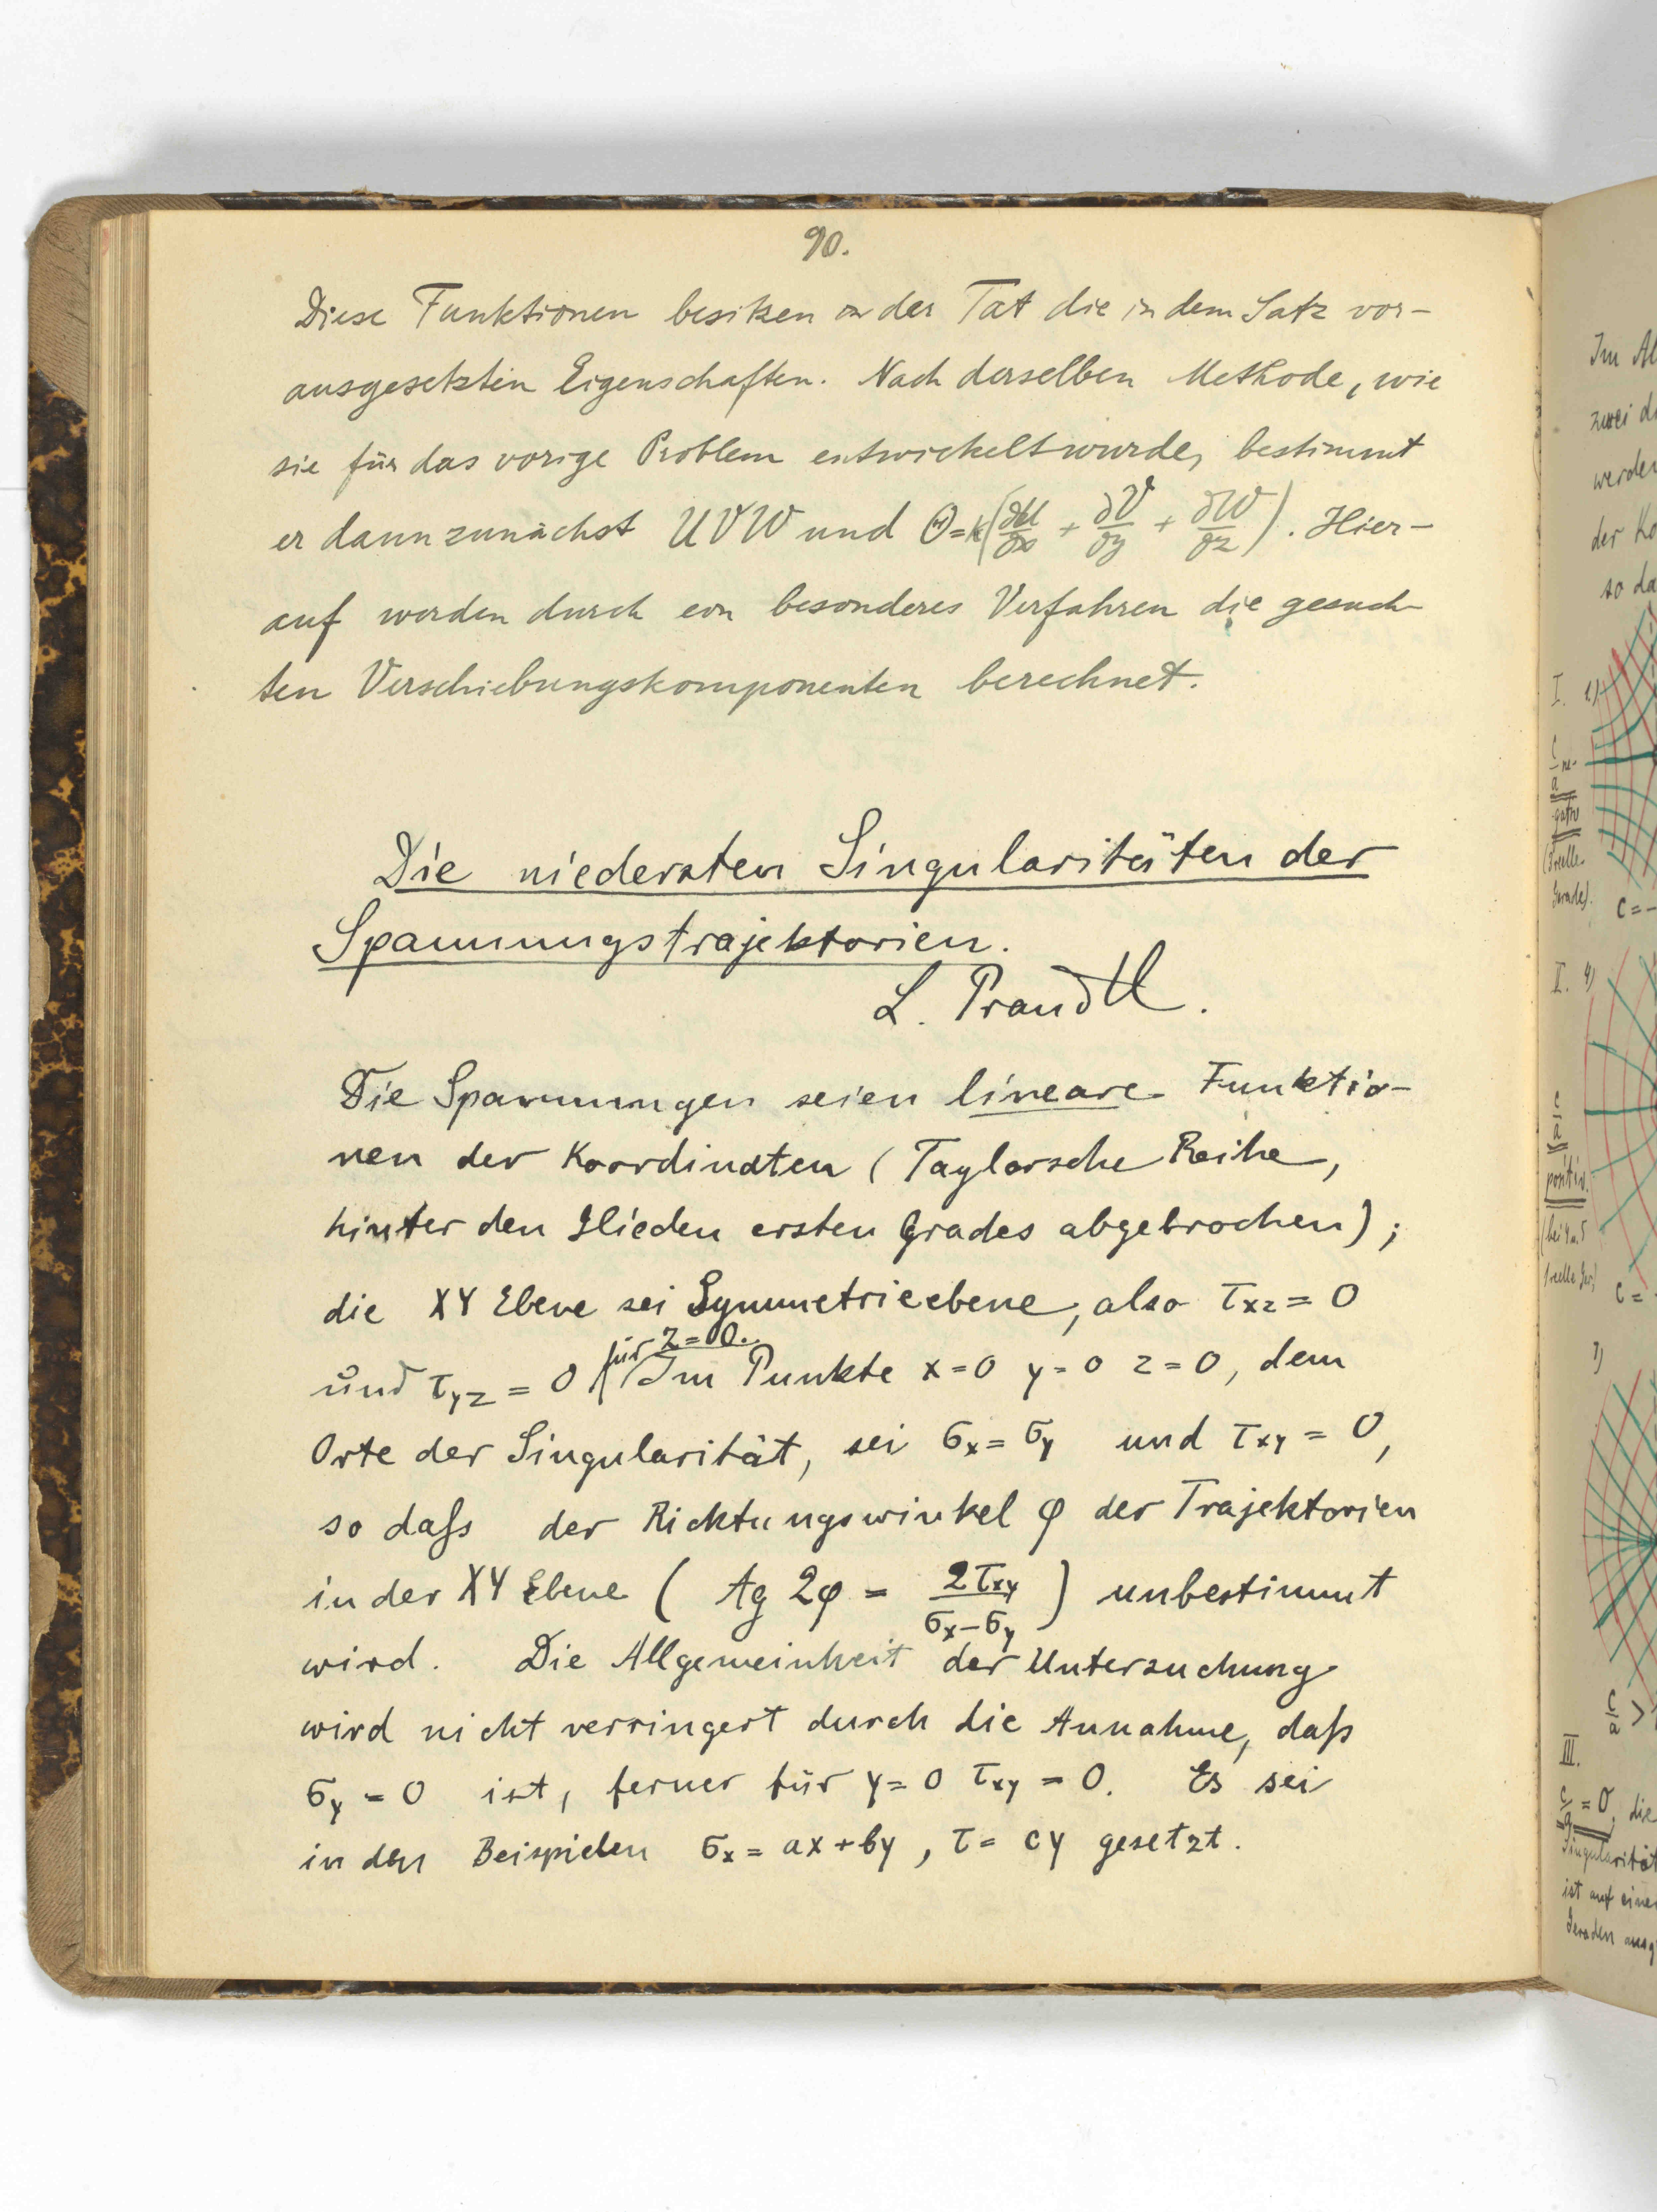 90.
Diese Funktionen besitzen in der Tat die in dem Satz vor-
ausgesetzten Eigenschaften. Nach derselben Methode, wie
sie für das vorige Problem entwickelt wurde, bestimmt
er dann zunächst U V W und Θ = k(∂U/∂x + ∂V/∂y + ∂W/∂z). Hier-
auf werden durch ein besonderes Verfahren die gesuch-
ten Verschiebungskomponenten berechnet.
Die niedersten Singularitäten der
Spannungstrajektorien.
L. Prandtl.
Die Spannungen seien lineare Funktio-
nen der Koordinaten (Taylorsche Reihe,
hinter den Glieden ersten Grades abgebrochen);
die XY Ebene sei Symmetrieebene, also τxz = 0
und τyz = 0 für z = 0. Im Punkte x = 0 y = 0 z = 0, dem
Orte der Singularität, sei σx = σy und τxy = 0,
so daß der Richtungswinkel φ der Trajektorien
in der XY Ebene ( tg 2φ = 2τxy / σx − σy ) unbestimmt
wird. Die Allgemeinheit der Untersuchung
wird nicht verringert durch die Annahme, daß
σy = 0 ist, ferner für y = 0 τxy = 0. Es sei
in den Beispielen σx = ax + by, τ = cy gesetzt.
Im Al
zwei d
werden
der Ko
so da
I. 1)
c/a ne-
gativ
Gerade).
c = -
II. 4)
c/a
positiv.
c = -
7)
c/a >
III.
c/a = 0, die
Singularität
ist auf einer
Geraden ausg